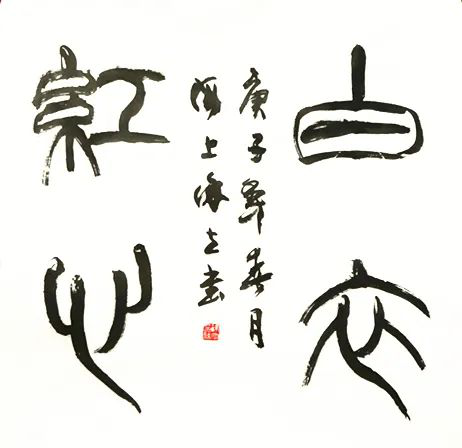 白衣
紅心
庚子年春月
上海立書